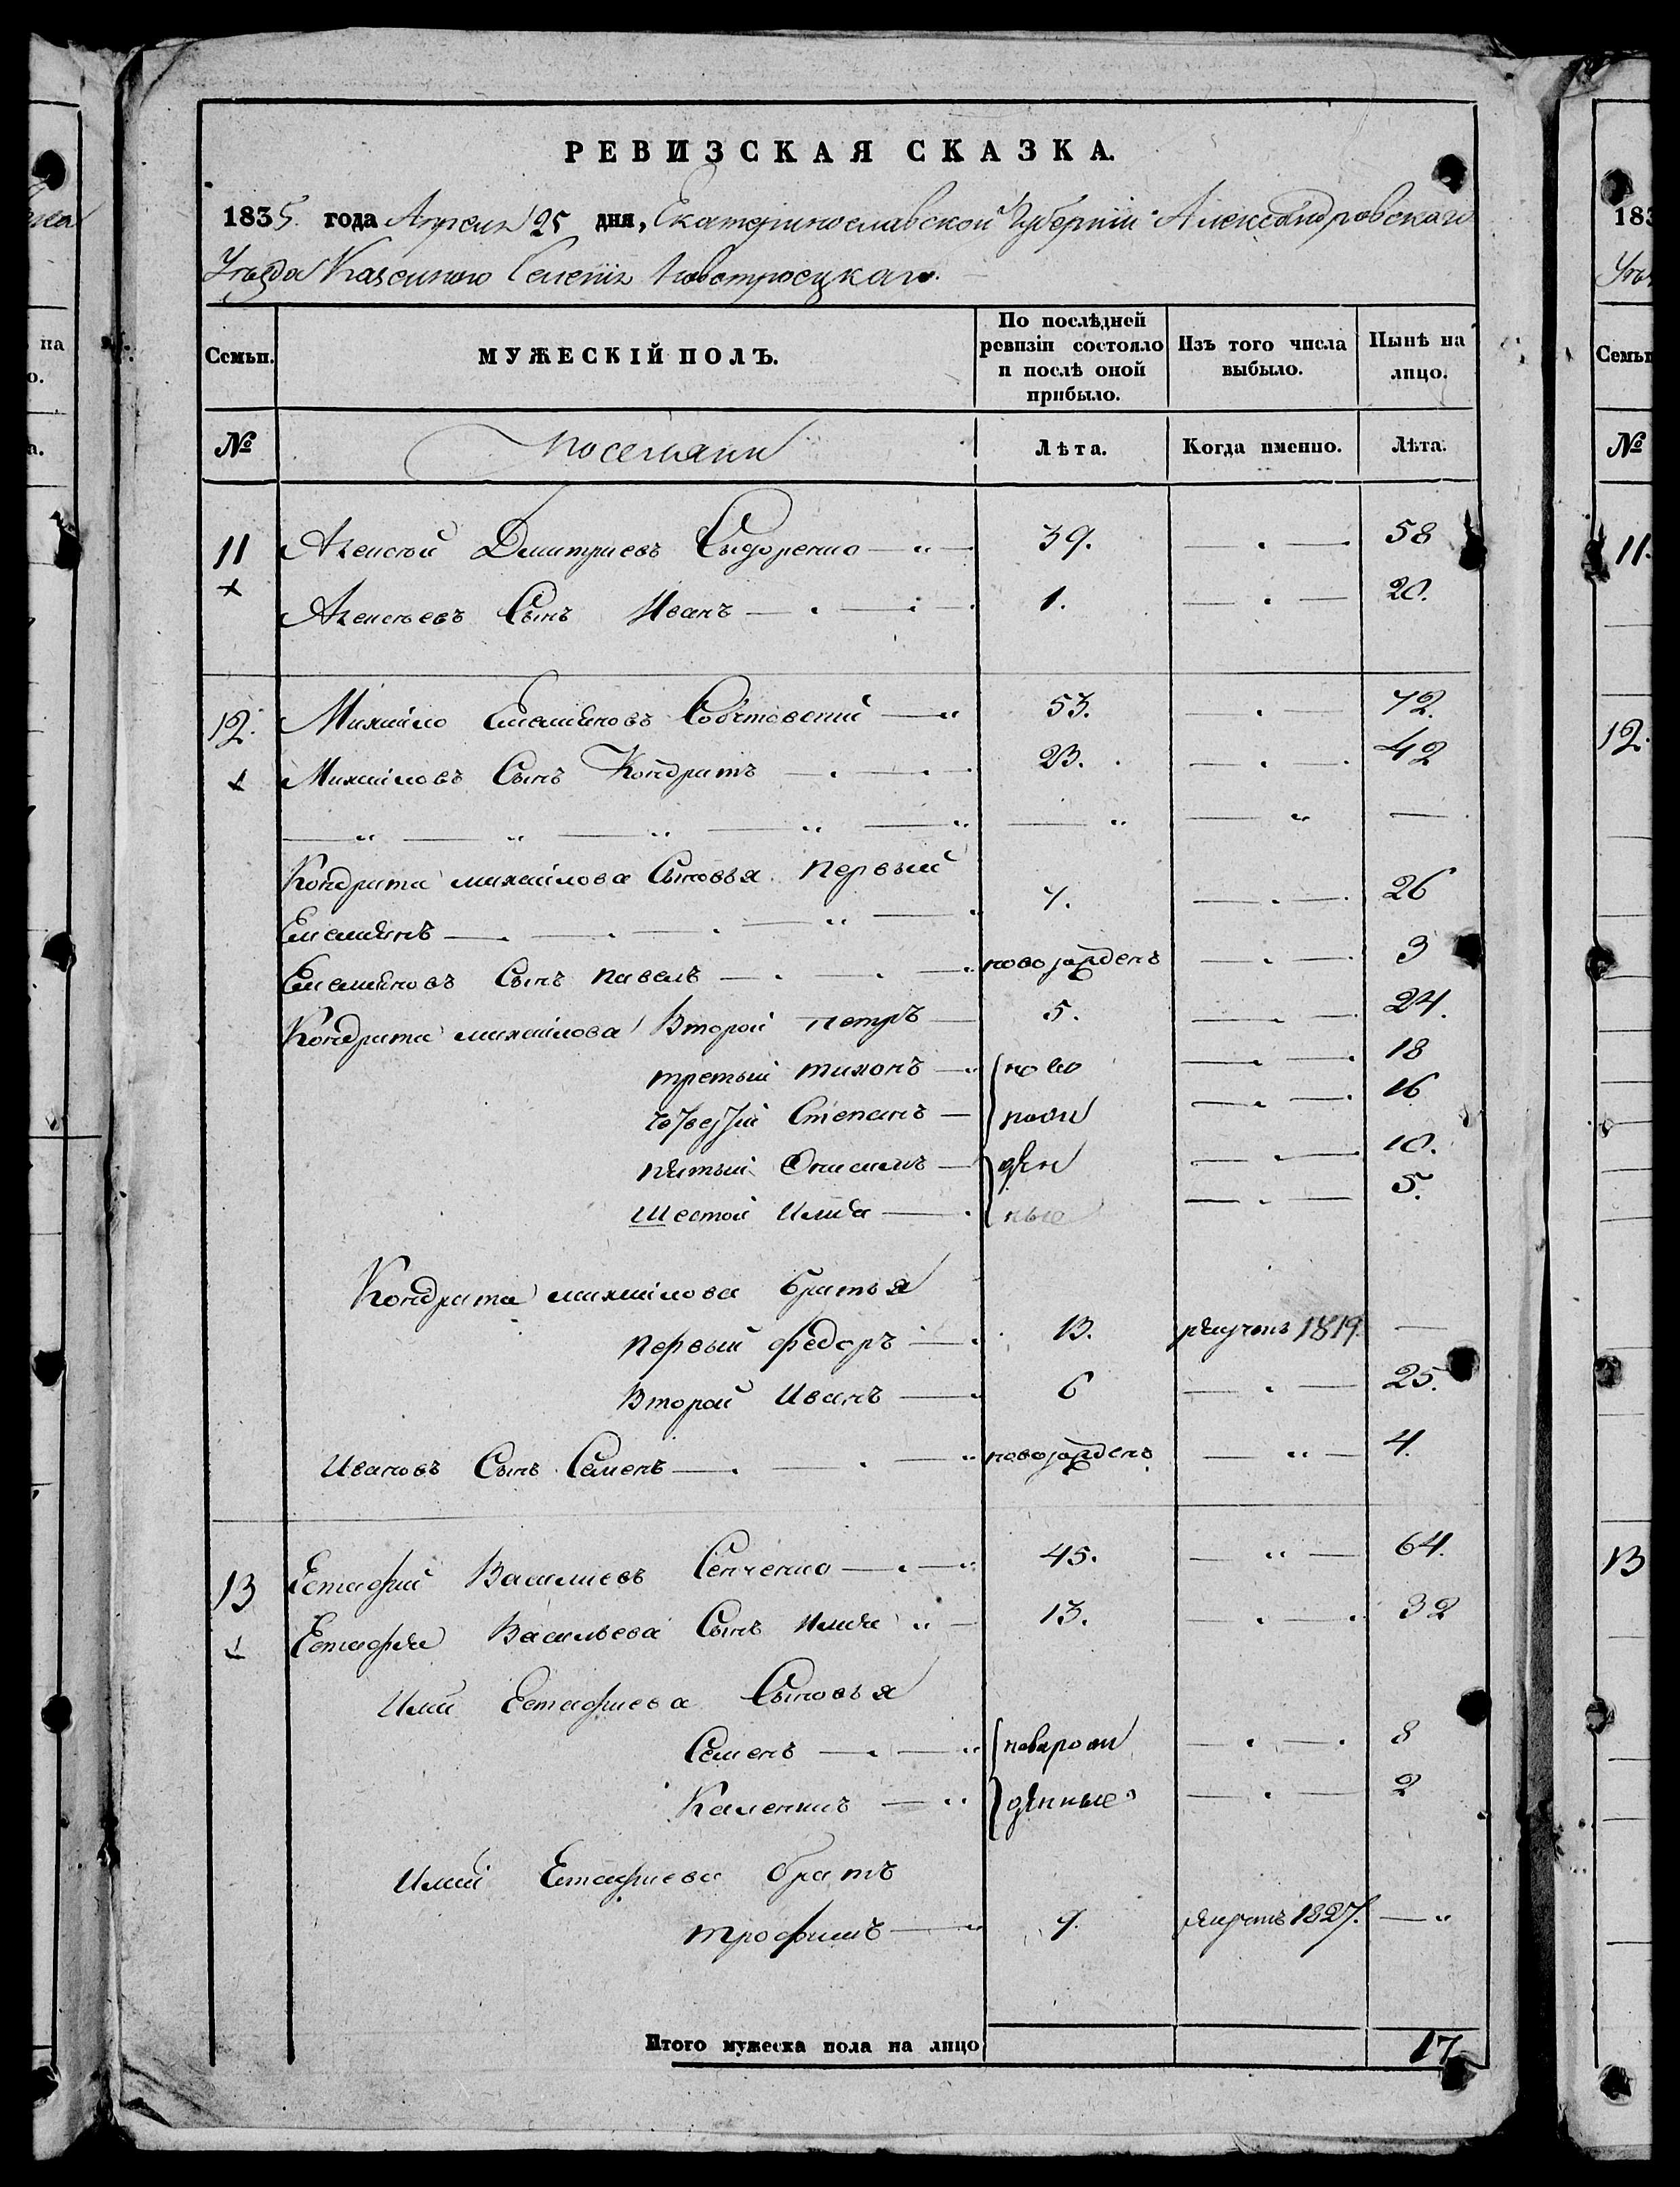 РЕВИЗСКАЯ СКАЗКА.
1835. года Апреля 25 дня, Екатеринославской Губернiи Александровскаго
Уѣзда Казенного Селенiя Новотроецкаго.
Семьи. МУЖЕСКIЙ ПОЛЪ. По послѣдней ревизiи состояло и послѣ оной прибыло. Изъ того числа выбыло. Нынѣ на лицо.
№ Поселяни Лѣта. Когда именно. Лѣта.
11 Алексѣй Дмитриевъ Сидоренко 39. 58
Алексѣевъ Сынъ Иванъ 1. 20.
12. Михайло Емельяновъ 53. 72.
Михайловъ Сынъ Кондратъ 23. 42
Кондрата михайлова Сыновья первый
Емельянъ 7. 26
Емельяновъ Сынъ павелъ новорожденъ 3
Кондрата михайлова Второй петръ 5. 24.
третый тихонъ ново 18
четвертый Степанъ рож 16
пятый Онисимъ ден 10.
шестой Илья ные 5.
Кондрата михайлова братья
первый федоръ 13. рекрутъ 1819.
Второй Иванъ 6 25.
Ивановъ Сынъ Семенъ новорожденъ 4.
13 Естафий Василиевъ Сенченко 45. 64.
Естафия Васильева Сынъ Илья 13. 32
Илии Естафиева Сыновья
Семенъ новорож 8
Каленикъ денные 2
Илии Естафиева братъ
трофимъ 9. рекрутъ 1827.
Итого мужеска пола на лицо 17